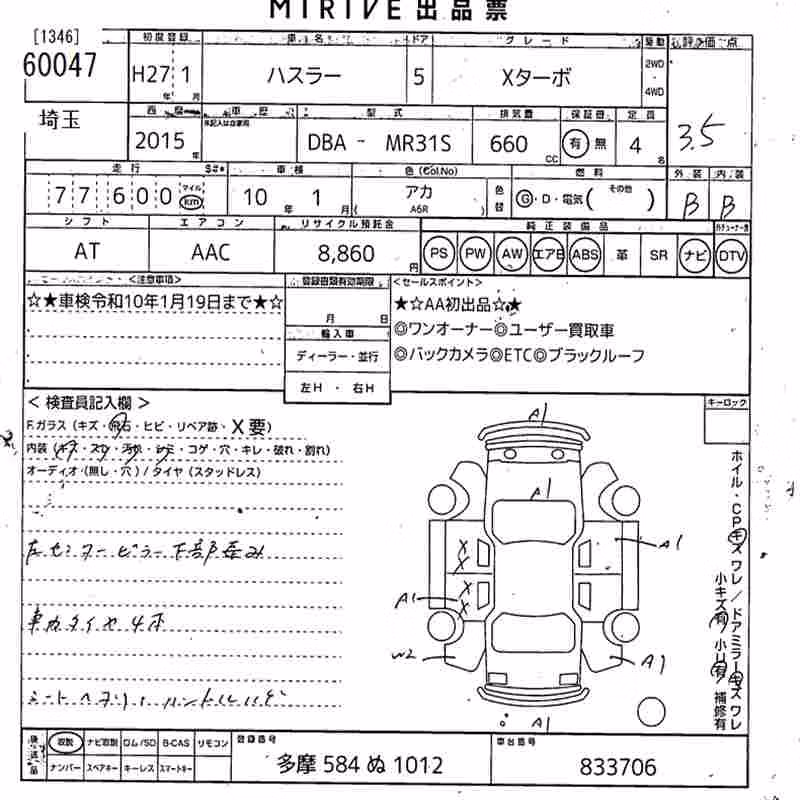 MIRIVE 出品票
[1346]
60047
初度登録 車名 ドア グレード 駆動 評価点
H27 1 ハスラー 5 Xターボ 2WD・4WD
年 月
埼玉
西暦 車歴 型式 排気量 保証書 定員
2015 年 DBA - MR31S 660 CC 有 無 4 名 3.5
走行 車検 色(Col.No) 燃料 外装 内装
77600 マイル km 10 年 1 月 アカ 色替 G・D・電気( その他 ) B B
A6R
シフト エアコン リサイクル預託金 純正装備品
AT AAC 8,860 円 PS PW AW エアB ABS 革 SR ナビ DTV
<注意事項> 登録書類有効期限 <セールスポイント>
☆★車検令和10年1月19日まで★☆ 月 日 ★☆AA初出品☆★
輸入車 ◎ワンオーナー◎ユーザー買取車
ディーラー・並行 ◎バックカメラ◎ETC◎ブラックルーフ
左H ・ 右H
<検査員記入欄> キーロック
F.ガラス (キズ・飛石・ヒビ・リペア跡・X要)
内装 (キズ・スレ・汚れ・シミ・コゲ・穴・キレ・破れ・割れ)
オーディオ (無し・穴) / タイヤ (スタッドレス)
左センターピラー下部歪み
車カタイヤ4本
A1
A1
X
X
A1
X
A1 X
W2
A1
A1
ホイル・CPキズワレ/ドアミラーキズワレ
小キズ有 小U有 補修有
後送品 取説 ナビ取説 ロム/SD B-CAS リモコン 登録番号 車台番号
ナンバー スペアキー キーレス スマートキー 多摩 584 ぬ 1012 833706